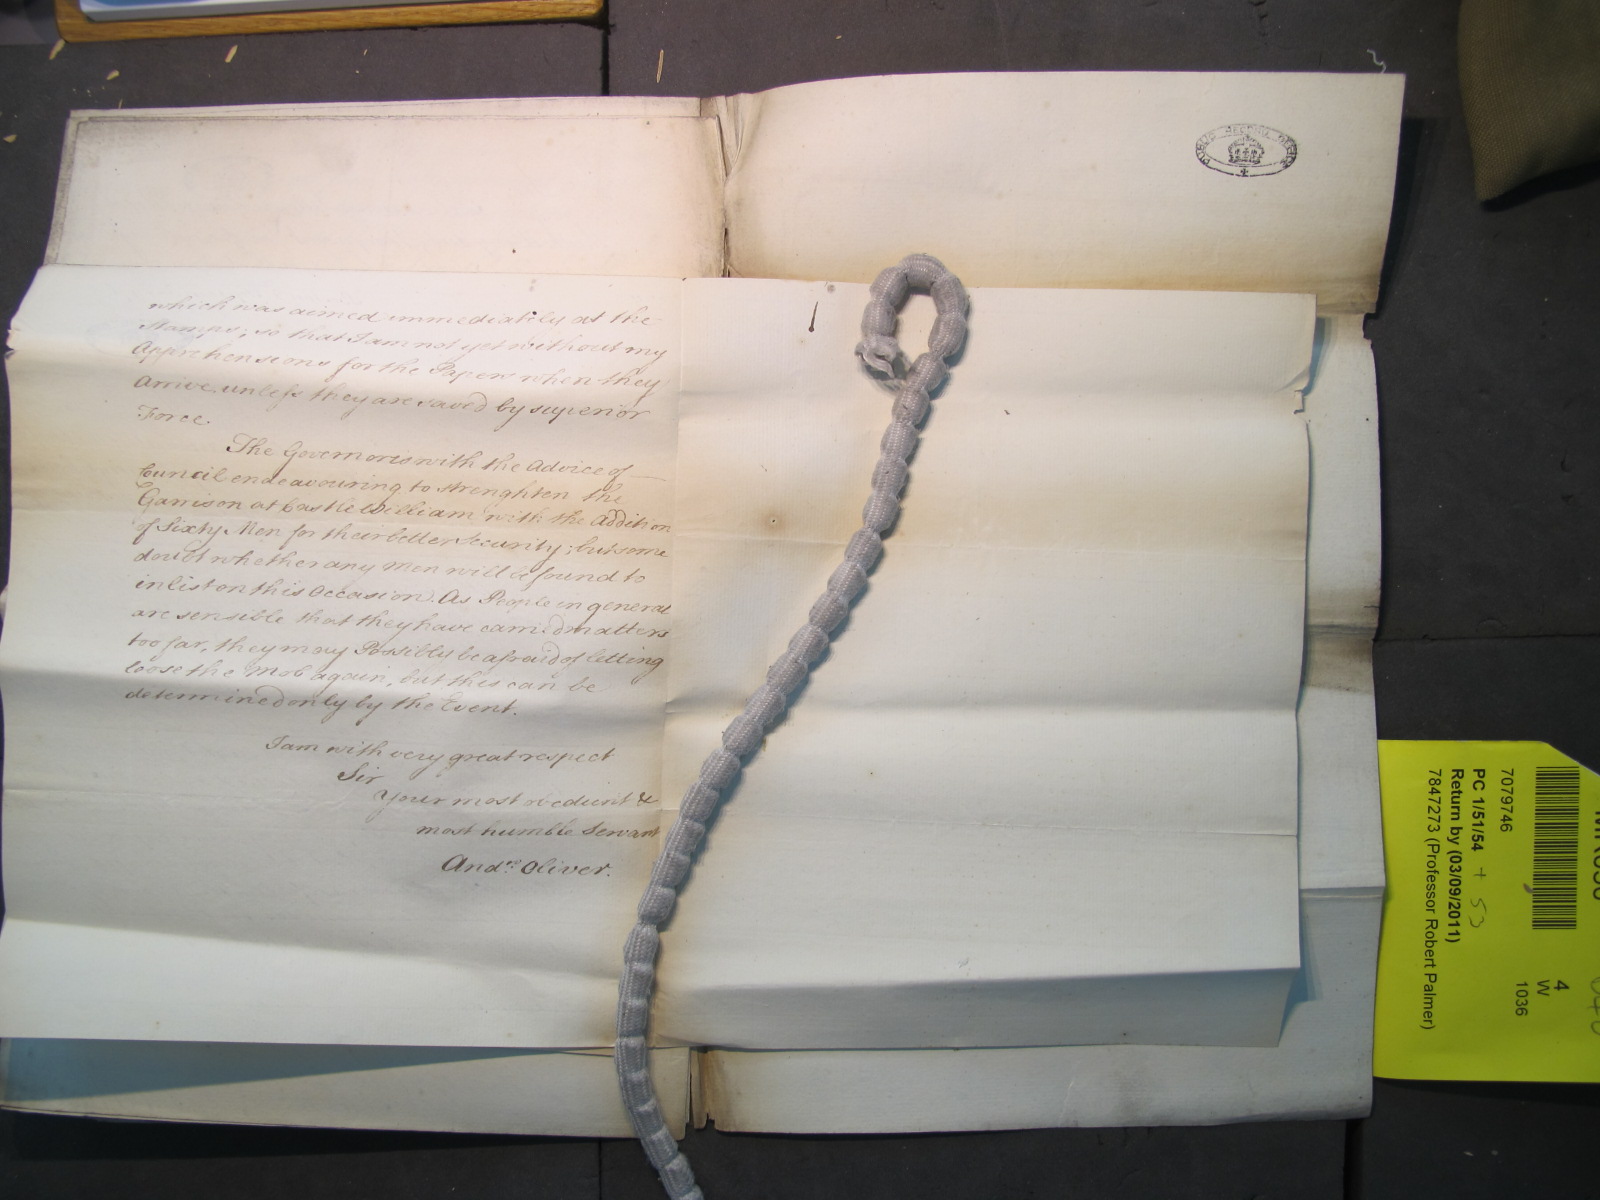 PUBLIC RECORD OFFICE
which was aimed immediately at the
Stamps; so that I am not yet without my
Apprehensions for the Papers when they
arrive unless they are saved by superior
Force.
The Governor is with the Advice of
Council endeavouring to strenghten the
Garrison at Castle William with the Addition
of Sixty Men for their better Security; but some
doubt whether any Men will be found to
inlist on this Occasion. As People in general
are sensible that they have carried matters
too far, they may Possibly be afraid of letting
loose the Mob again, but this can be
determined only by the Event.
I am with very great respect
Sir
Your most obedient &
most humble Servant
Andw. Oliver.
7079746
PC 1/51/54 + 53
Return by (03/09/2011)
7847273 (Professor Robert Palmer)
4
W
1036